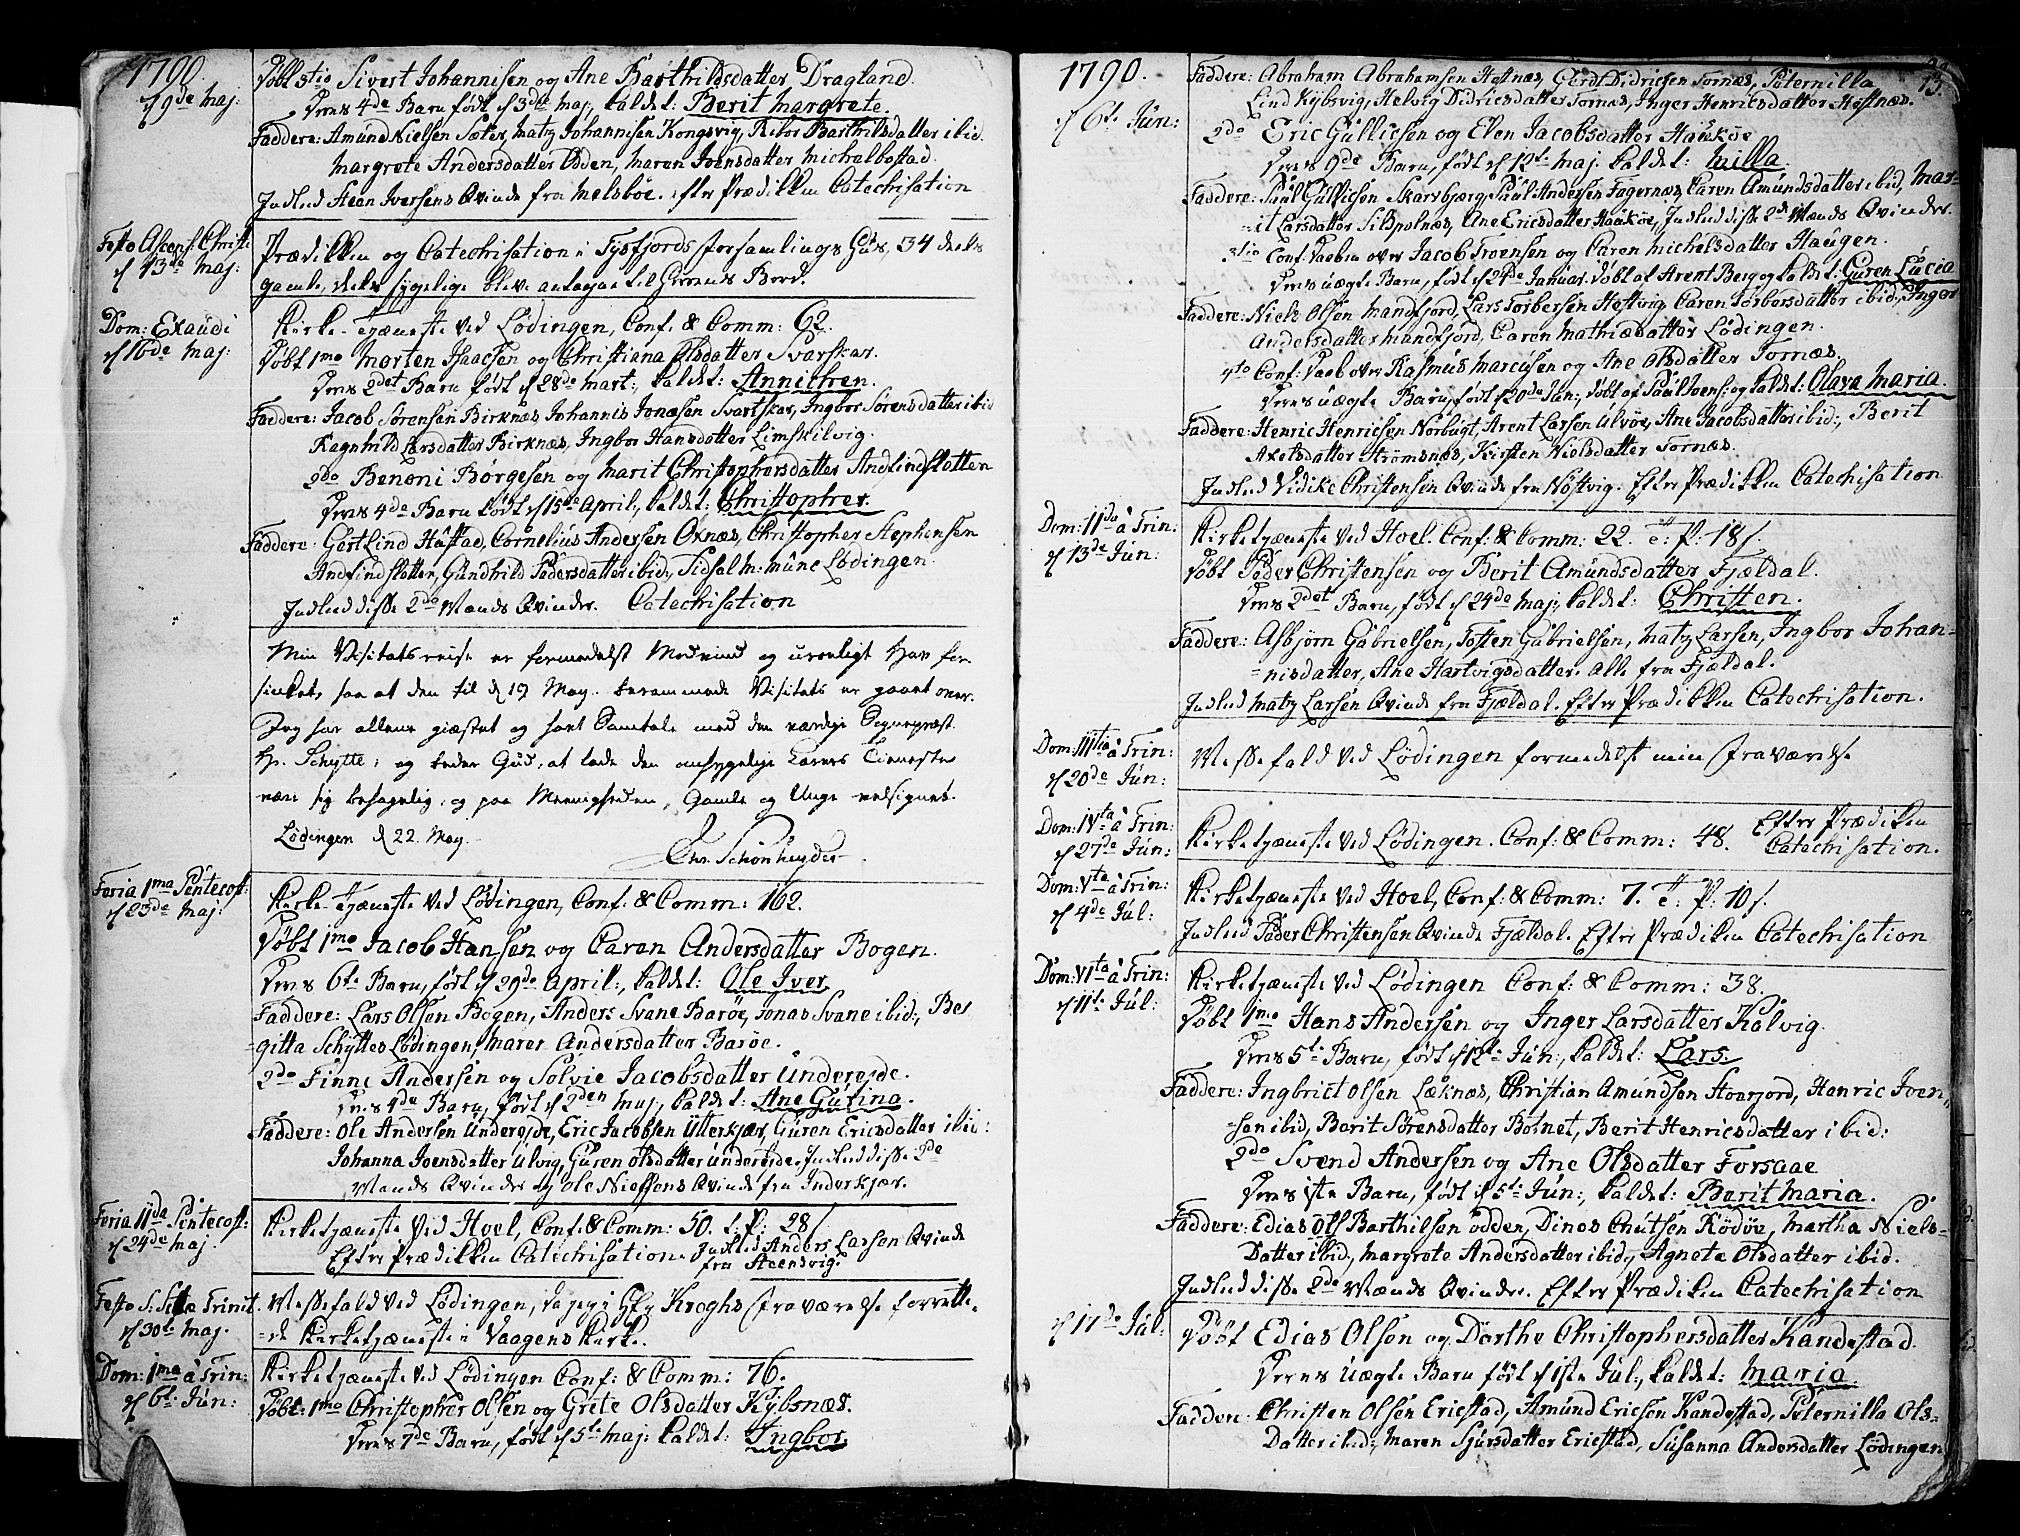 1790.
d 9de Maj:
Døbt 3tio Sivert Johannisen og Ane Barthildsdatter Dragland.
Deres 4de Barn født d 3die Maj, kaldet: Berit Margrete.
Faddere: Amund Nielsen Sæter, Matz Johannisen Kongsvig, Barthilsdatter ibid.
Margrete Andersdatter Odden, Maren Ivensdatter Michalbostad.
Indled Iversens Qvinde fra Melsböe. efter Prædikken Catechisation
Festo Ascens: Christi
d 13de Maj:
Prædikken og Catechisation i Tysfjords Forsamlings Huus, 34 deels
gamle, deels sygelige bleve antagne til Herrens Bord.
Dom: Exaudi
d 16de Maj:
Kirke-Tjæneste ved Lødingen, Conf: & Comm: 62.
Døbt 1mo Morten Isaacsen og Christiana Olsdatter Svarskar.
Deres 2det Barn født d 28de Mart:, kaldet: Annichen.
Faddere: Jacob Sørensen Birknæs, Johannis Jonæsen Svartskar, Ingbor Sørensdatter ibid
Ragnhild Larsdatter Birknæs, Ingbor Hansdatter Limskilvig.
2do Benoni Børgesen og Marit Christophersdatter Andfindslotten
Deres 4de Barn født d 15de April:, kaldet: Christopher.
Faddere: Gert Lind Hustad, Cornelius Andersen Oxnæs, Christopher Stephensen
Andfindslotten, Gundhild Pedersdatter ibid:, Sidsal M: Munc Lødingen.
Indled disse 2de Mænds Qvinder. Catechisation
Min Visitatsreise er formedelst Modvind og uroeligt Hav for
sinket, saa at den til d 19 May berammede Visitats er gaaet over.
Jeg har allene giæstet og havt Samtale med den værdige Sognepræst
Hr. Schytte, og beder Gud, at lade den omhyggelige Lærers Tieneste
være sig behagelig, og paa Meenigheden, Gamle og Unge velsignet.
Lødingen d 22 May.
Chr. Schönheyder
Feria 1ma Pentecost:
d 23de Maj:
Kirke-Tjæneste ved Lødingen, Conf: & Comm: 162.
Døbt 1mo Jacob Hansen og Caren Andersdatter Bogen.
Deres 6te Barn, født d 29de April:, kaldet: Ole Iver
Faddere: Lars Olsen Bogen, Anders Svane Barøe, Jonas Svane ibid:, Be-
gitta Schyttes Lødingen, Maren Andersdatter Barøe.
2do Finne Andersen og Sølvie Jacobsdatter Undereide.
Deres 4de Barn, født d 2den Maj, kaldet: Ane Gurina.
Faddere: Ole Andersen Undereide, Eric Jacobsen Ytterkjær, Guren Ericsdatter ibid:
Johanna Ivensdatter Ulvig, Guren Olsdatter Undereide. Indled disse 2de
Mænds Qvinder og Ole Nielsens Qvinde fra Inderkjær.
Feria IIda Pentecost:
d 24de Maj
Kirketjæneste ved Hoel, Conf: & Comm: 50. t: P: 28 s.
Efter Prædikken Catechisation. Indled Anders Larsen Qvinde
fra Steensvig.
Festo S: Sctæ Trinit.
d 30te Maj.
Messefald ved Lødingen, da jeg i Hr Kroghs Fraværelse forrette-
de Kirketjæneste i Vaagens Kirke.
Dom: 1ma à Trin:
d 6te Jun:
Kirketjæneste ved Lødingen Conf: & Comm: 76.
Døbt: 1mo Christopher Olsen og Grete Olsdatter Kybsnæs.
Deres 7de Barn, født d 5te Maj: kaldet: Ingbor
1790.
13.
d 6te Jun:
Faddere: Abraham Abrahamsen Hofnæs, Gerdt Didricsen Tornæs, Peternilla
Lind Kybsvig, Helvig Didricsdatter Tornæs, Inger Henricsdatter Hofnæs.
2do Eric Gullicsen og Elen Jacobsdatter Haakøe
Deres 9de Barn, født d 12te Maj. kaldet: Milla.
Faddere: Paul Gullicsen Skarvbjerg, Paul Andersen Fagernæs, Caren Amundsdatter ibid, Mar-
it Larsdatter Sildpolnæs, Ane Ericsdatter Haakøe, Indled disse 2de Mænds Qvinder.
3tio Conf: Daaben over Jacob Troensen og Caren Michelsdatter Haugen.
Deres uægte Barn, født d 24de Januar. døbt af Arent Berg og kaldet: Guren Lucia
Faddere: Niels Olsen Mandfjord, Lars Torbersen Hestvig, Caren Torbersdatter ibid, Inger
Andersdatter Mandfjord, Caren Mathiædatter Lødingen.
4to Conf: Daab over Rasmus Marcusen og Ane Olsdatter Tornæs.
Deres uægte Barn, født d 20de Jan:, døbt af Paul Ivens: og kaldet: Olava Maria.
Faddere: Henric Henricsen Norbugt, Arent Larsen Ulvøe, Ane Jacobsdatter ibid:, Berit
Axelsdatter Strømsnæs, Kirsten Nielsdatter Tornæs.
Indled Didikc Christensen Qvinde fra Nøstvig. Efter Prædikken Catechisation
Dom: IIda à Trin:
d 13de Jun:
Kirketjæneste ved Hoel. Conf: & Comm: 22. T: P: 18 s.
Døbt Peder Christensen og Berit Amundsdatter Fjældal.
Deres 2det Barn, født d 24de Maj, kaldet: Christen.
Faddere: Asbjørn Gabrielsen, Tosten Gabrielsen, Matz Larsen, Ingbor Johan-
nisdatter, Ane Hartvigsdatter. Alle fra Fjældal.
Indled Matz Larsen Qvinde fra Fjældal. Efter Prædikken Catechisation.
Dom: IIItia à Trin:
d 20de Jun:
Messefald ved Lødingen formedelst min Fraværelse
Dom: IVta à Trin:
d 27de Jun:
Kirketjæneste ved Lødingen. Conf: & Comm: 48. Efter Prædiken
Catechisation.
Dom: Vta à Trin:
d 4de Jul:
Kirketjæneste ved Hoel, Conf: & Comm: 7. T: P: 10 s.
Indled Peder Christensen Qvinde Fjældal. Efter Prædiken Catechisation
Dom: VIta à Trin:
d 11te Jul:
Kirketjæneste ved Lødingen Conf: & Comm: 38.
Døbt 1mo Hans Andersen og Inger Larsdatter Kalvig.
Deres 5te Barn, født d 12te Jun:, kaldet: Lars.
Faddere: Ingbrict Olsen Læknæs, Christian Amundsen Storfjord, Henric Iven-
sen ibid, Berit Sørensdatter Botnet, Berit Henricsdatter ibid:
2do Svend Andersen og Ane Olsdatter Forsaae
Deres 1ste Barn, født d 5te Jun:, kaldet: Berit Maria.
Faddere: Edias Ols Barthilsen Odden, Dinas Cnutsen Rödøe, Martha Niels-
Datter ibid, Margrete Andersdatter ibid:, Agneta Olsdatter ibid.
Indled disse 2de Mænds Qvinder. Efter Prædiken Catechisation
d 17de Jul:
Døbt Edias Olsen og Dorthe Christophersdatter Kandestad.
Deres uægte Barn født d 1ste Jul:, kaldet: Maria.
Faddere: Christen Olsen Ericstad, Amund Ericsen Kandestad, Peternilla Ols-
Datter ibid:, Maren Sjursdatter Ericstad, Susanna Andersdatter Lødingen